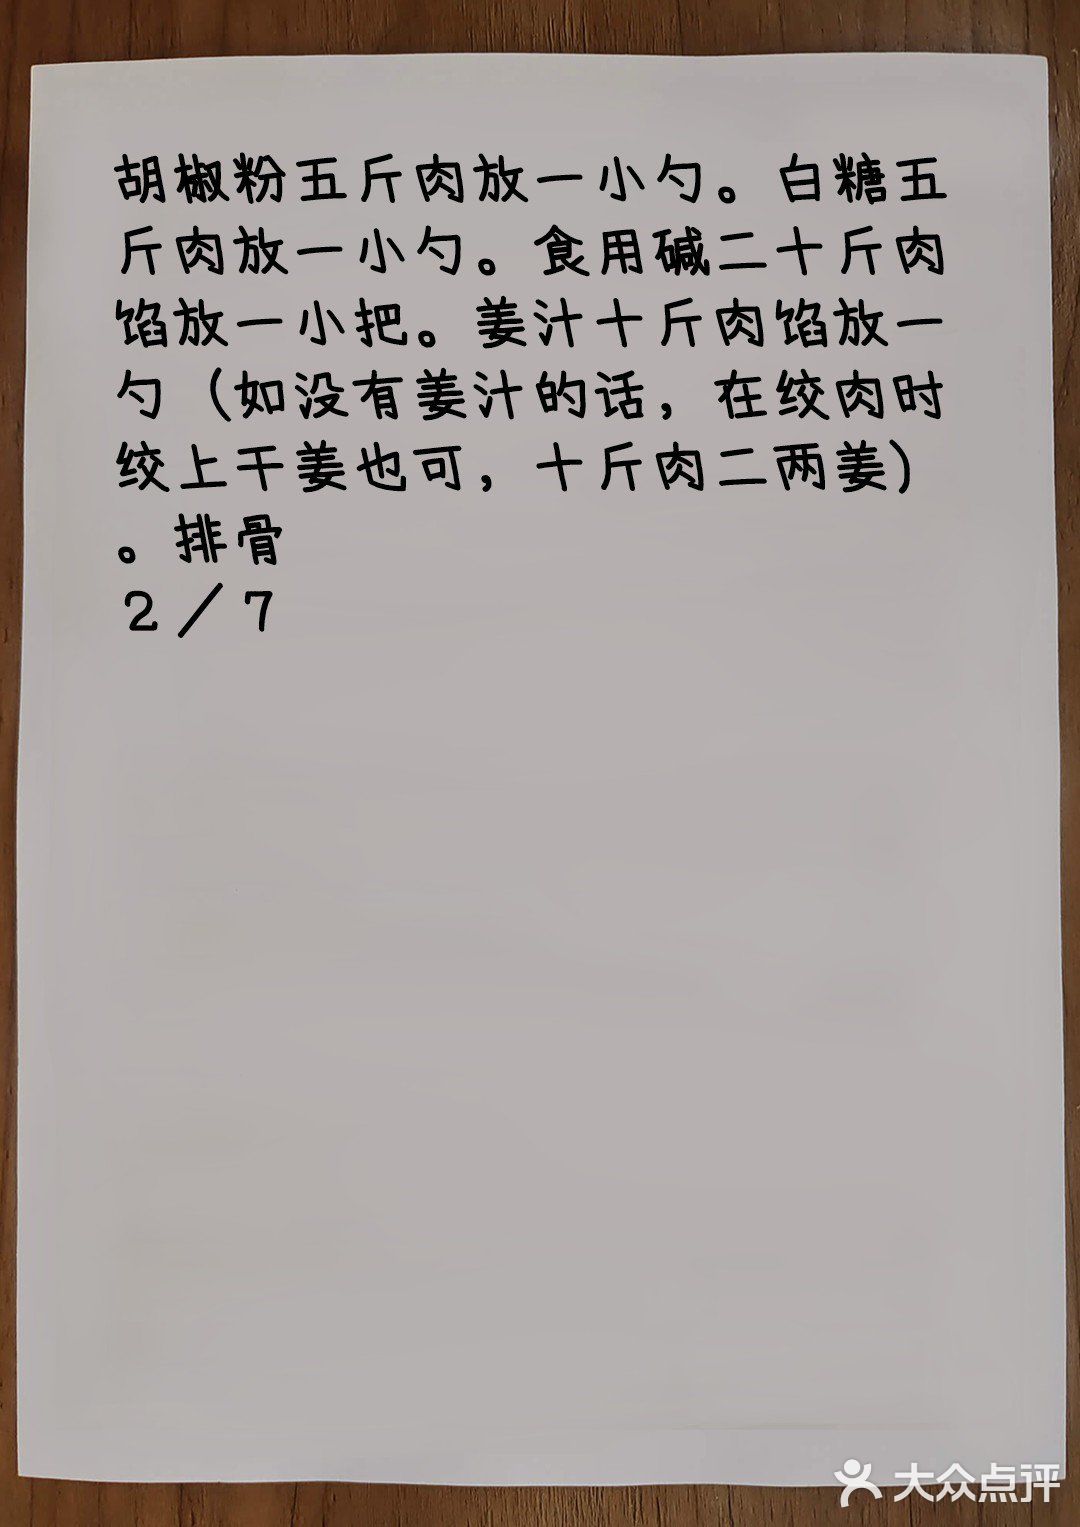 胡椒粉五斤肉放一小勺。白糖五
斤肉放一小勺。食用碱二十斤肉
馅放一小把。姜汁十斤肉馅放一
勺（如没有姜汁的话，在绞肉时
绞上干姜也可，十斤肉二两姜）
。排骨
2／7
大众点评